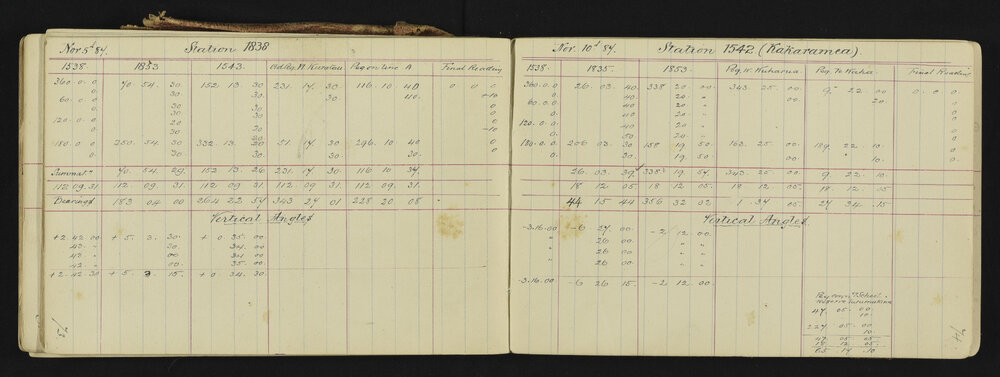 Nov. 5th 84. Station 1838
1538 1853 1543. Old Peg. W. Peg on line A Final Reading
360.0.0 70 54. 30 152. 13. 30 231. 17. 30 116. 10. 40 0 0 0
0. 30 30 30 40. +10
60.0.0 30 30 0
0. 30 30 0
120.0.0 20 30 0
0. 30 20 -10
180.0.0 250. 54. 30 332. 13. 20 51. 17. 30 296. 10 40 0
0. 30 30 30 30. 0
70. 54. 29. 152 13. 26 231 17. 30 116 10 37.
112.09.31. 112 09. 31. 112 09 31. 112. 09. 31. 112. 09. 31.
Bearings 183 04 00 264 22 57 343 27 01 228 20 08
Vertical Angles
+2.42.00 + 5. 3. 30. + 0 35. 00
42. 30. 34. 00
42. 00. 34 00
42. 00. 35. 00
+2.42.30 + 5. 3. 15. + 0 34. 30.
73
Nov. 10th 84. Station 1542 (Kakaramea).
1538. 1835. 1853. Peg W. Peg Final Reading
360.0.0 26. 03. 40 338 20 00 343 25. 00. 9. 22. 00 0. 0. 0
0. 40 20 00. 20. 0
60.0.0 40 20 0
0. 40 20 0
120.0.0 40 20 0
0. 50 20 0
180.0.0 206 03. 30 158 19 50. 163. 25 00. 189. 22. 10 0
0. 30 19 50. 00. 10. 0
26. 03. 39 338 19. 57. 343. 25. 00 9. 22. 10.
18 12 05 18 12. 05. 18 12. 05 18 12 05
44 15 44 356 32 02 1. 37 05 27 34 .15
Vertical Angles
-3.16.00 -6 27 00 -2 12. 00.
26 00
26 00
26 00
-3.16.00 -6 26 15. -2 12. 00.
Peg School
Reserve
47. 05. 00
10.
227. 05. 00
10.
47. 05 05
18 12 05.
65 17 .10
74.